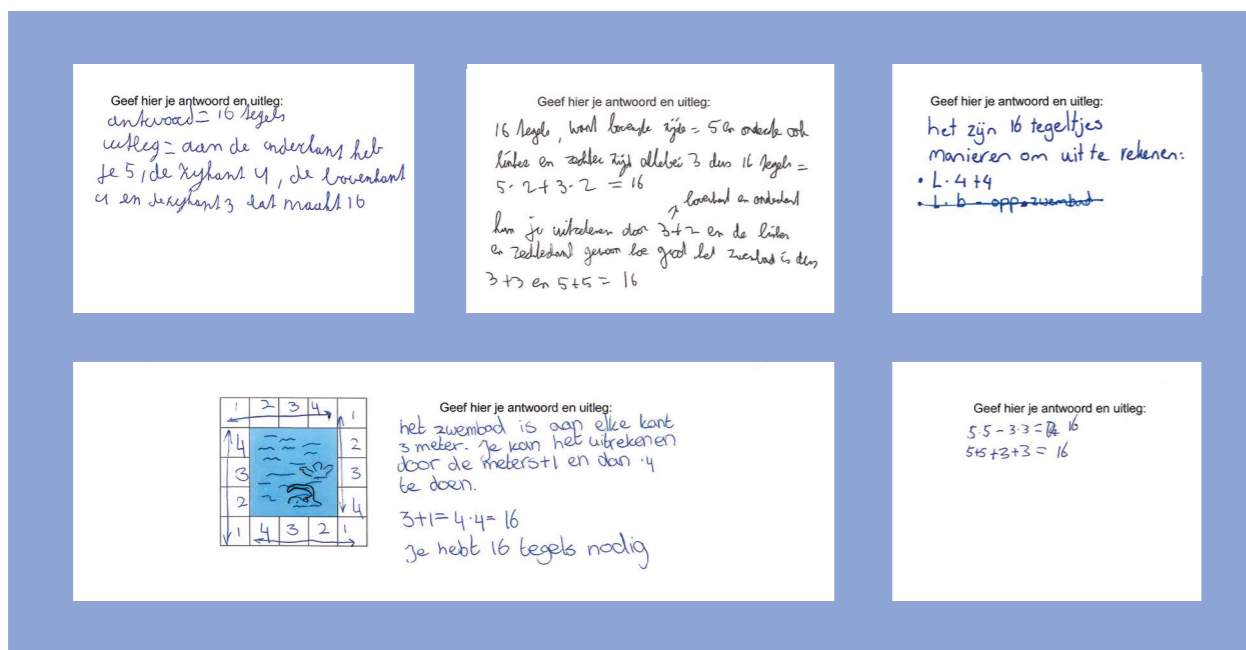 Geef hier je antwoord en uitleg:
antwoord = 16 tegels
uitleg = aan de onderkant heb
je 5, de zijkant 4, de bovenkant
4 en de zijkant 3 dat maakt 16
Geef hier je antwoord en uitleg:
16 tegels, want bovenste zijde = 5 en onderste ook
linker en rechter zijd allebei 3 dus 16 tegels =
5·2+3·2 = 16
bovenkant en onderkant
kun je uitrekenen door 3+2 en de linker
en rechterkant gewoon hoe groot het zwembad is dus
3+3 en 5+5 = 16
Geef hier je antwoord en uitleg:
het zijn 16 tegeltjes
manieren om uit te rekenen:
• L·4+4
• L·b - opp. zwembad
1 2 3 4 1
4 2
3 3
2 4
1 4 3 2 1
Geef hier je antwoord en uitleg:
het zwembad is aan elke kant
3 meter. Je kan het uitrekenen
door de meters+1 en dan ·4
te doen.
3+1=4·4=16
Je hebt 16 tegels nodig
Geef hier je antwoord en uitleg:
5·5-3·3= 16
5+5+3+3= 16